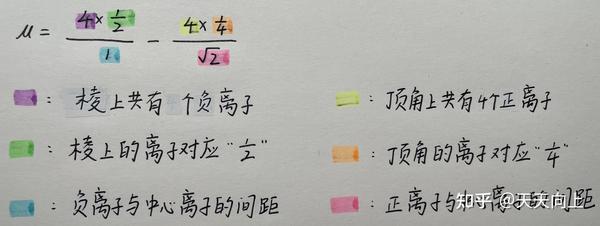 μ = 4×½/1 − 4×¼/√2
: 棱上共有4个负离子
: 顶角上共有4个正离子
: 棱上的离子对应“½”
: 顶角的离子对应“¼”
: 负离子与中心离子的间距
: 正离子与中心离子的间距
知乎 @天天向上